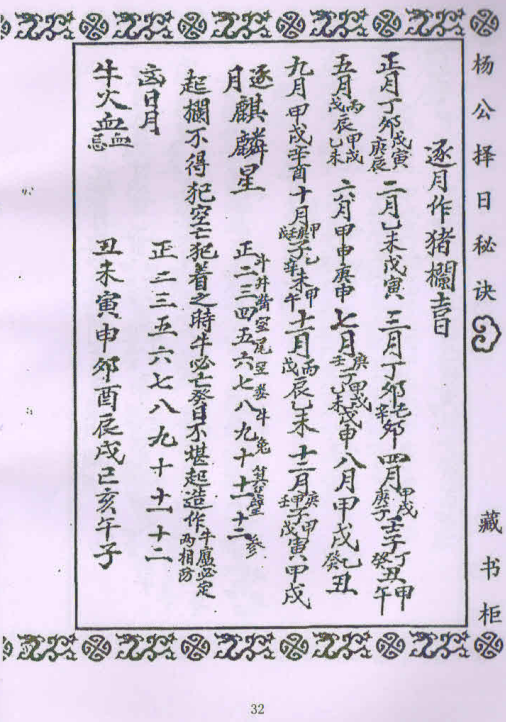 杨公择日秘诀
藏书柜
逐月作猪欄吉日
正月丁卯戊寅庚辰 二月乙未戊寅 三月丁卯卯 四月甲戌庚子壬子丁丑癸甲午
五月丙戊辰甲戌乙未 六月甲申庚申 七月甲戌乙未戊申 八月甲戌癸乙丑
九月甲戌辛酉 十月甲子辛未 十一月丙戊辰乙未 十二月庚甲子壬甲寅戊甲戌
逐月麒麟星 正二三四五六七八九十十一十二
斗井觜室尾 牛 箕壁参
起欄不得犯空亡犯着之時牛必亡癸日不堪起造作牛屋必定两相防
日月 正二三五六七八九十十一十二
牛火血血忌 丑未寅申卯酉辰戌巳亥午子
32